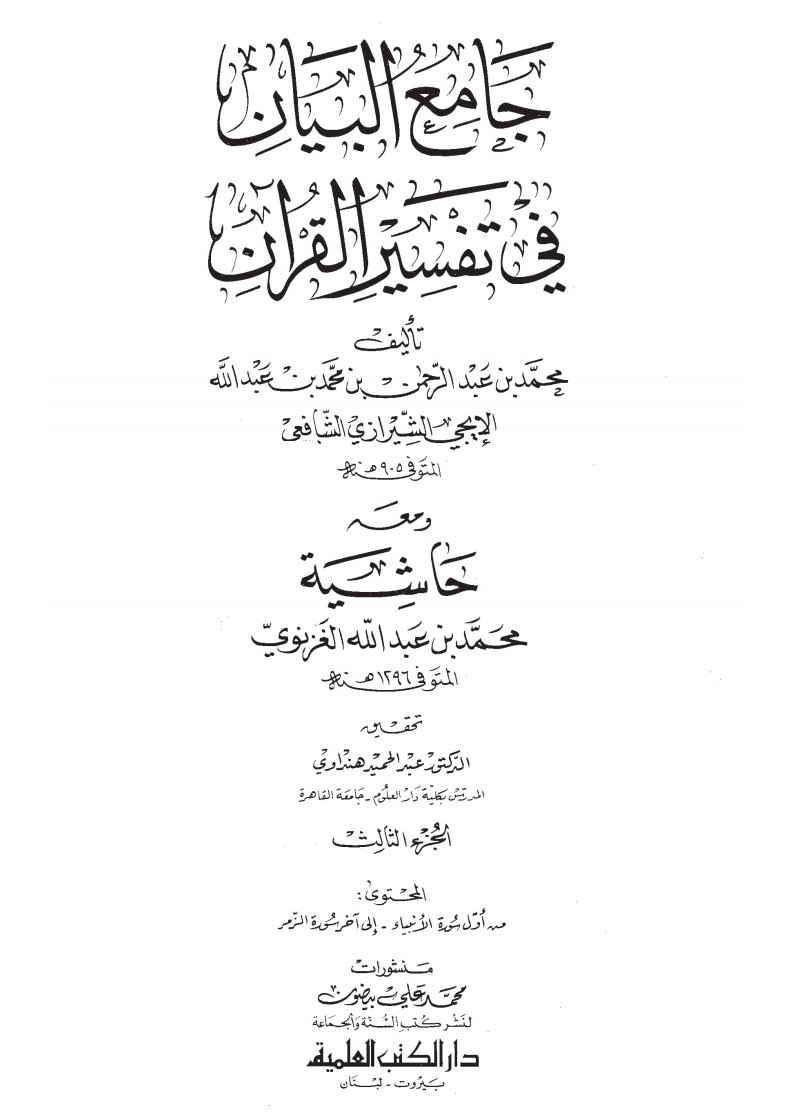 جَامِعُ البَيَانِ
فِي تَفْسِيرِ القُرْآنِ
تأليف
محمّد بن عَبْد الرّحمن بن محمّد بن عَبْد اللّه
الإيجي الشّيرازي الشّافعي
المتوفى ٩٠٥ هـ
ومعه
حَاشِيَة
محمَّد بن عَبد اللّه الغَزنويّ
المتوفى ١٢٩٦ هـ
تحقيق
الدكتور عبد الحميد هنداوي
المدرّس بكليّة دَار العلُوم - جَامعَة القاهرة
الجُزء الثّالِث
المحتوى:
من أوّل سُورة الأنبياء - إلى آخر سُورة الزّمر
مَنشورات
محمّد علي بيضون
لنَشر كُتب السُّنّة وَالجمَاعة
دار الكتب العلمية
بَيْرُوت - لبْنان